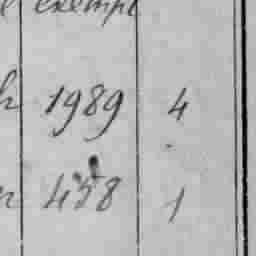 exempl
1989 4
458 1